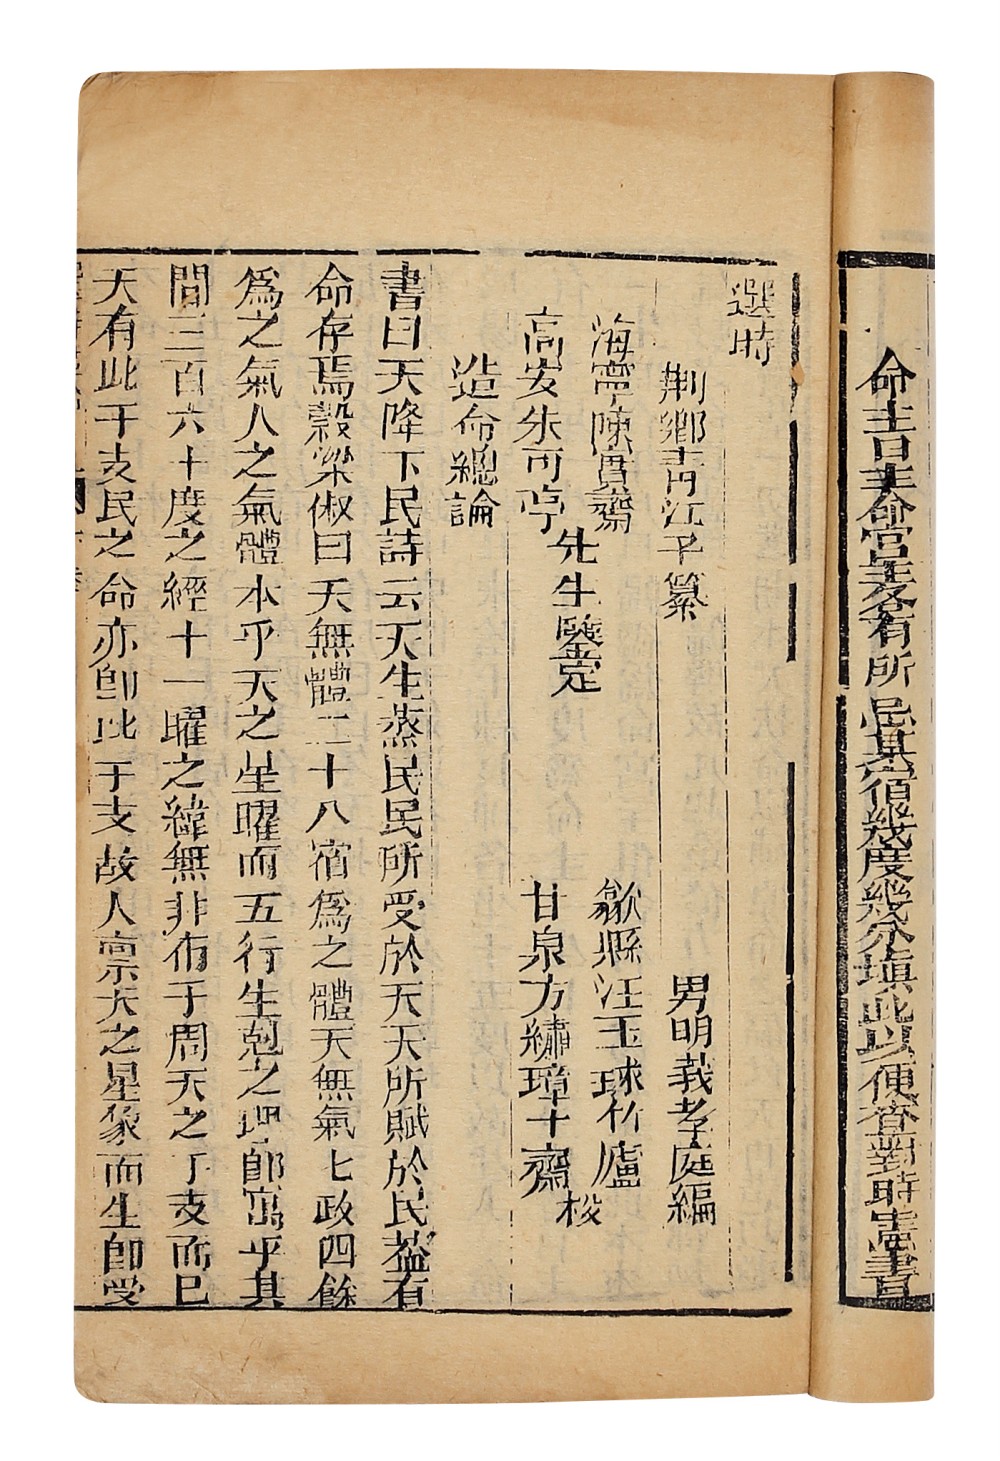 命主日主命宮主各有所忌其宿幾度幾分塡此以便查對時憲書
選時
荆鄉青江子纂
男明義孝庭編
海寧陳實齋
高安朱可亭
先生鑒定
歙縣汪玉球竹廬
甘泉方繡璋十齋
校
造命總論
書曰天降下民詩云天生蒸民民所受於天天所賦於民葢有
命存焉穀梁俶曰天無體二十八宿爲之體天無氣七政四餘
爲之氣人之氣體本乎天之星曜而五行生剋之理卽寓乎其
間三百六十度之經十一曜之緯無非布于周天之干支而已
天有此干支民之命亦卽此干支故人禀天之星象而生卽受